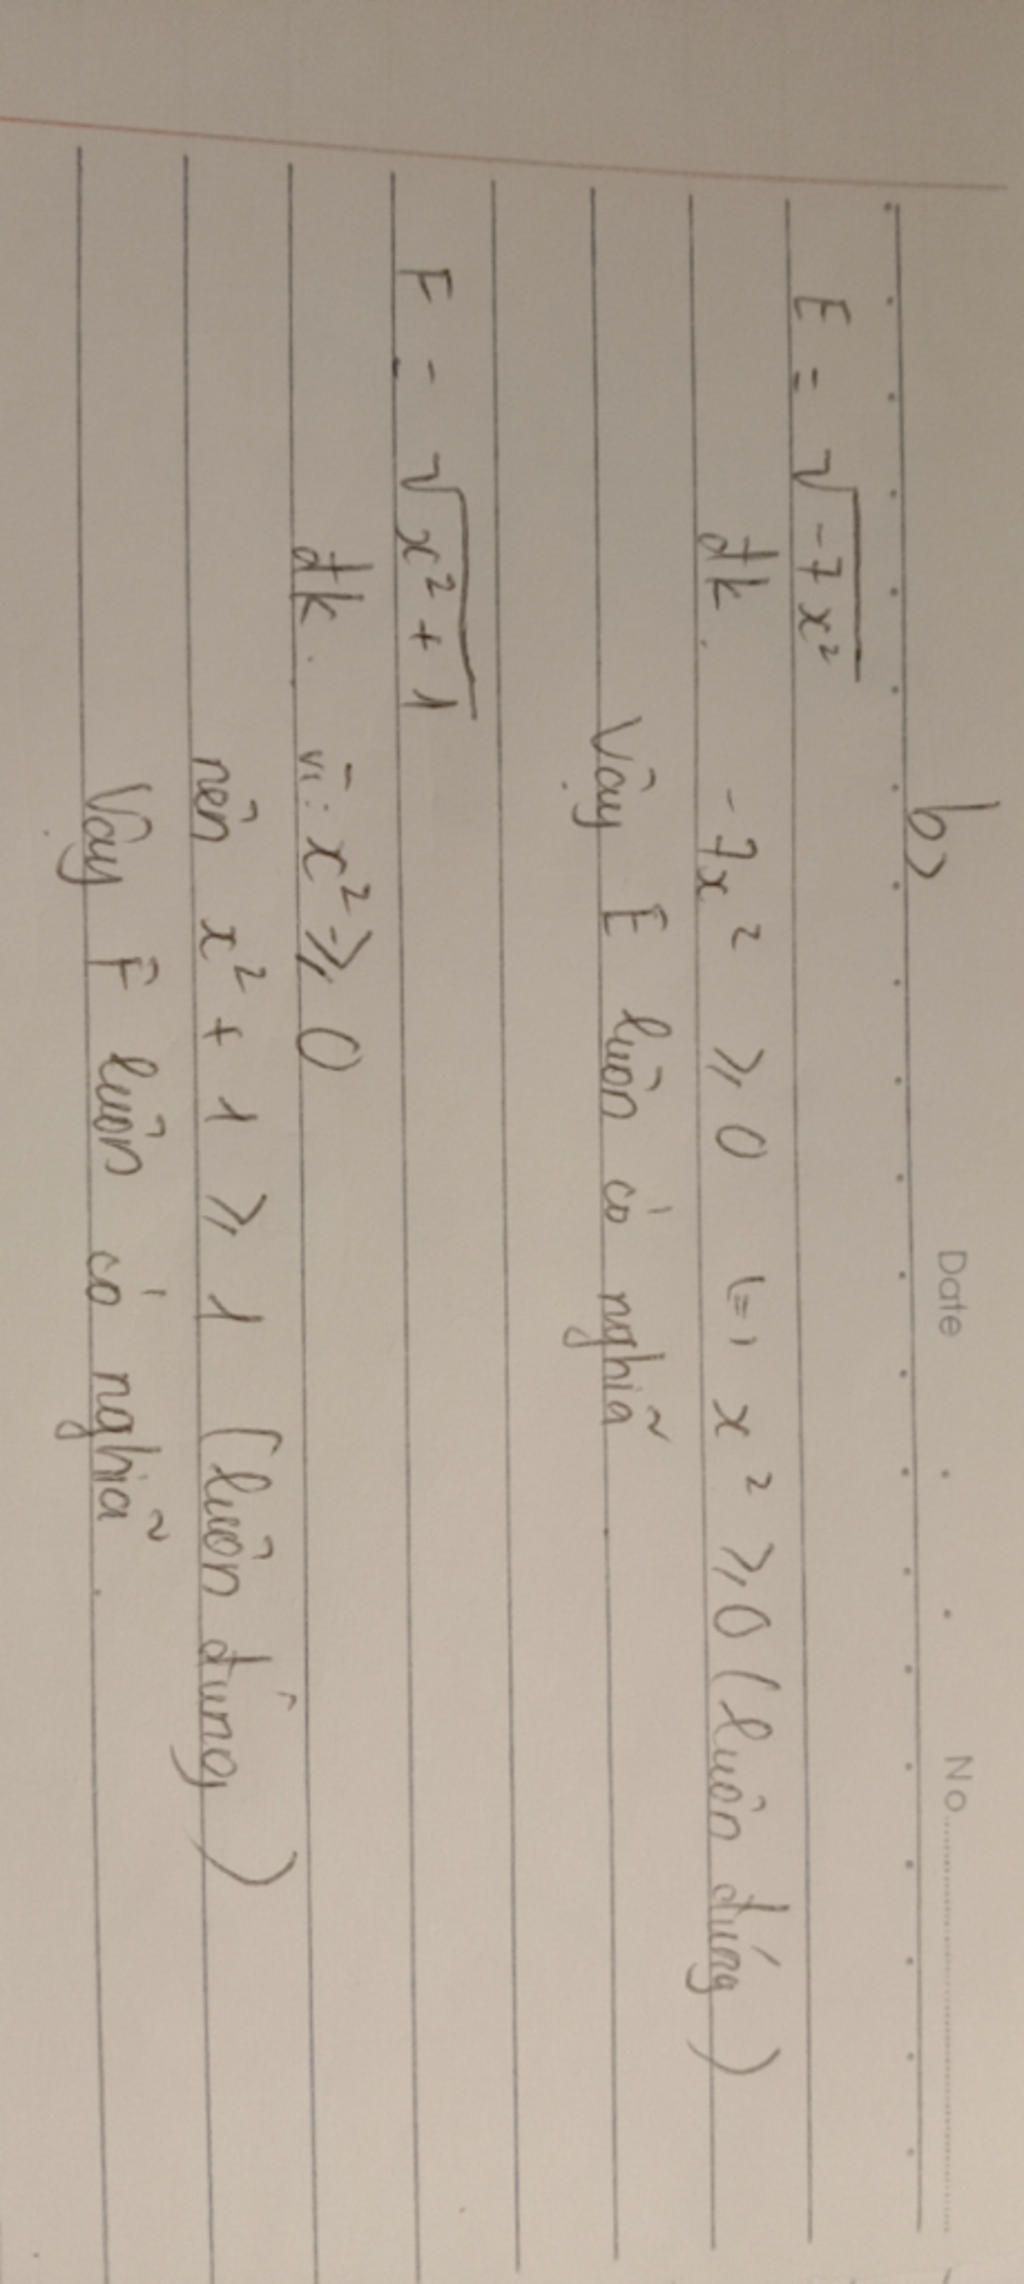 Date No.
b)
E = √-7x²
đk. -7x² ≥ 0 (=) x² ≥ 0 (luôn đúng)
Vậy E luôn có nghĩa
F = √x² + 1
đk. vì: x² ≥ 0
nên x² + 1 ≥ 1 (luôn đúng)
Vậy F luôn có nghĩa.